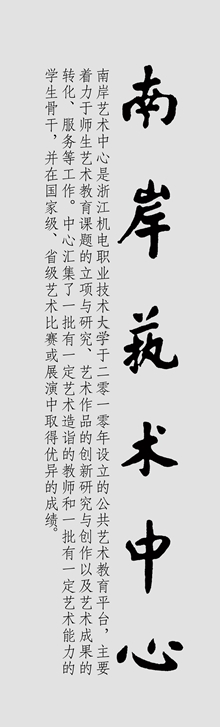 南岸艺术中心
南岸艺术中心是浙江机电职业技术大学于二零一零年设立的公共艺术教育平台，主要
着力于师生艺术教育课题的立项与研究、艺术作品的创新研究与创作以及艺术成果的
转化、服务等工作。中心汇集了一批有一定艺术造诣的教师和一批有一定艺术能力的
学生骨干，并在国家级、省级艺术比赛或展演中取得优异的成绩。